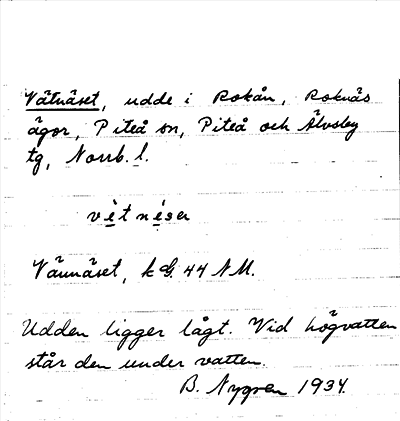 Vätnäset, udde i Rokån, Roknäs
ägor, Piteå sn, Piteå och Älvsby
tg, Norrb. l.
vètnéser
Vännäset, k bl. 44 NM.
Udden ligger lågt. Vid högvatten
står den under vatten.
B. Nygren 1934.